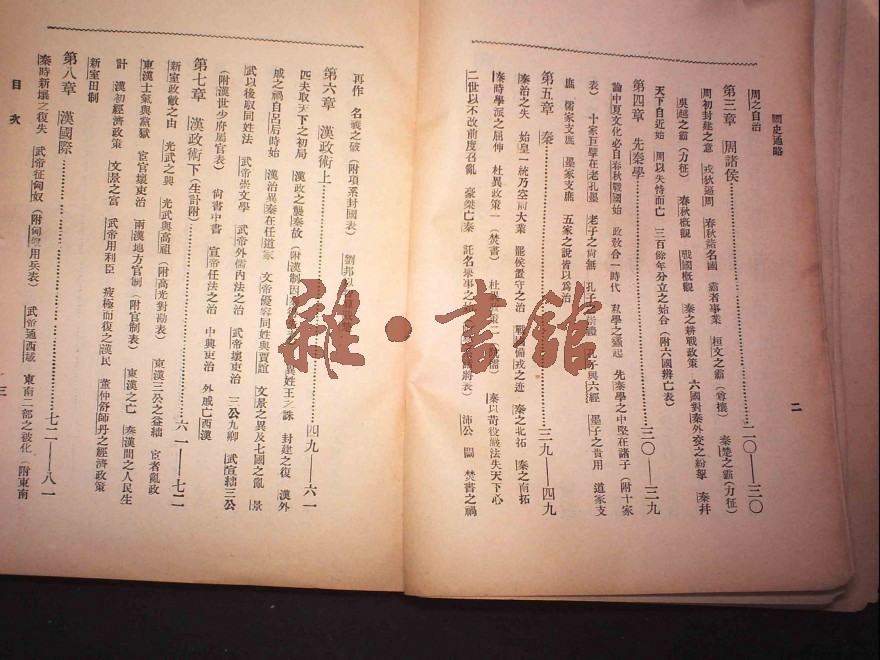 國史通略
二
周之自治
第三章 周諸侯⋯⋯二〇——三〇
周初封建之意 戎狄逼周 春秋諸名國 霸者事業 桓文之霸(尊攘) 秦楚之霸(力征)
吳越之霸(力征) 春秋概觀 戰國概觀 秦之耕戰政策 六國對秦外交之紛拏 秦幷
天下自近始 周以失恃而亡 三百餘年分立之始合(附六國辨亡表)
第四章 先秦學⋯⋯三〇——三九
論中夏文化必自春秋戰國始 政敎合一時代 私學之蠭起 先秦學之中堅在諸子(附十家
表) 十家巨擘在老孔墨 老子之尙無 孔子與六經 墨子之貴用 道家支
庶 儒家支庶 墨家支庶 五家之說皆以爲治
第五章 秦⋯⋯三九——四九
秦治之失 始皇一統乃空前大業 罷侯置守之治 戰國備戎之迹 秦之北拓 秦之南拓
秦時學派之屈伸 杜異政策一(焚書) 杜異政策二 秦以苛役嚴法失天下心
二世以不改前度召亂 豪傑亡秦 託名舉事之 沛公 關 焚書之禍
再作 名義之破(附項系封國表) 劉邦以
第六章 漢政術上⋯⋯四九——六一
匹夫取天下之初局 漢政之襲秦故(附漢制因 異姓王之誅 封建之復 漢外
戚之禍自呂后時始 漢治異秦在任道家 文帝優容同姓與賈誼 文景之異及七國之亂 景
武以後馭同姓法 武帝崇文學 武帝外儒內法之治 武帝壞吏治 三公九卿 武宣絀三公
(附漢世少府屬官表) 尙書中書 宣帝任法之治 中興吏治 外戚亡西漢
第七章 漢政術下(生計附)⋯⋯六一——七二
新室政敝之由 光武之興 光武與高祖(附高光對勘表) 東漢三公之益絀 宦者亂政
東漢士氣與黨獄 宦官壞吏治 兩漢地方官制(附官制表) 東漢之亡 秦漢間之人民生
計 漢初經濟政策 文景之富 武帝用利臣 疲極而復之漢民 董仲舒師丹之經濟政策
新室田制
第八章 漢國際⋯⋯七二——八一
秦時新壤之復失 武帝征匈奴(附匈奴用兵表) 武帝通西域 東南二部之被化(附東南
目次
三
雜·書館